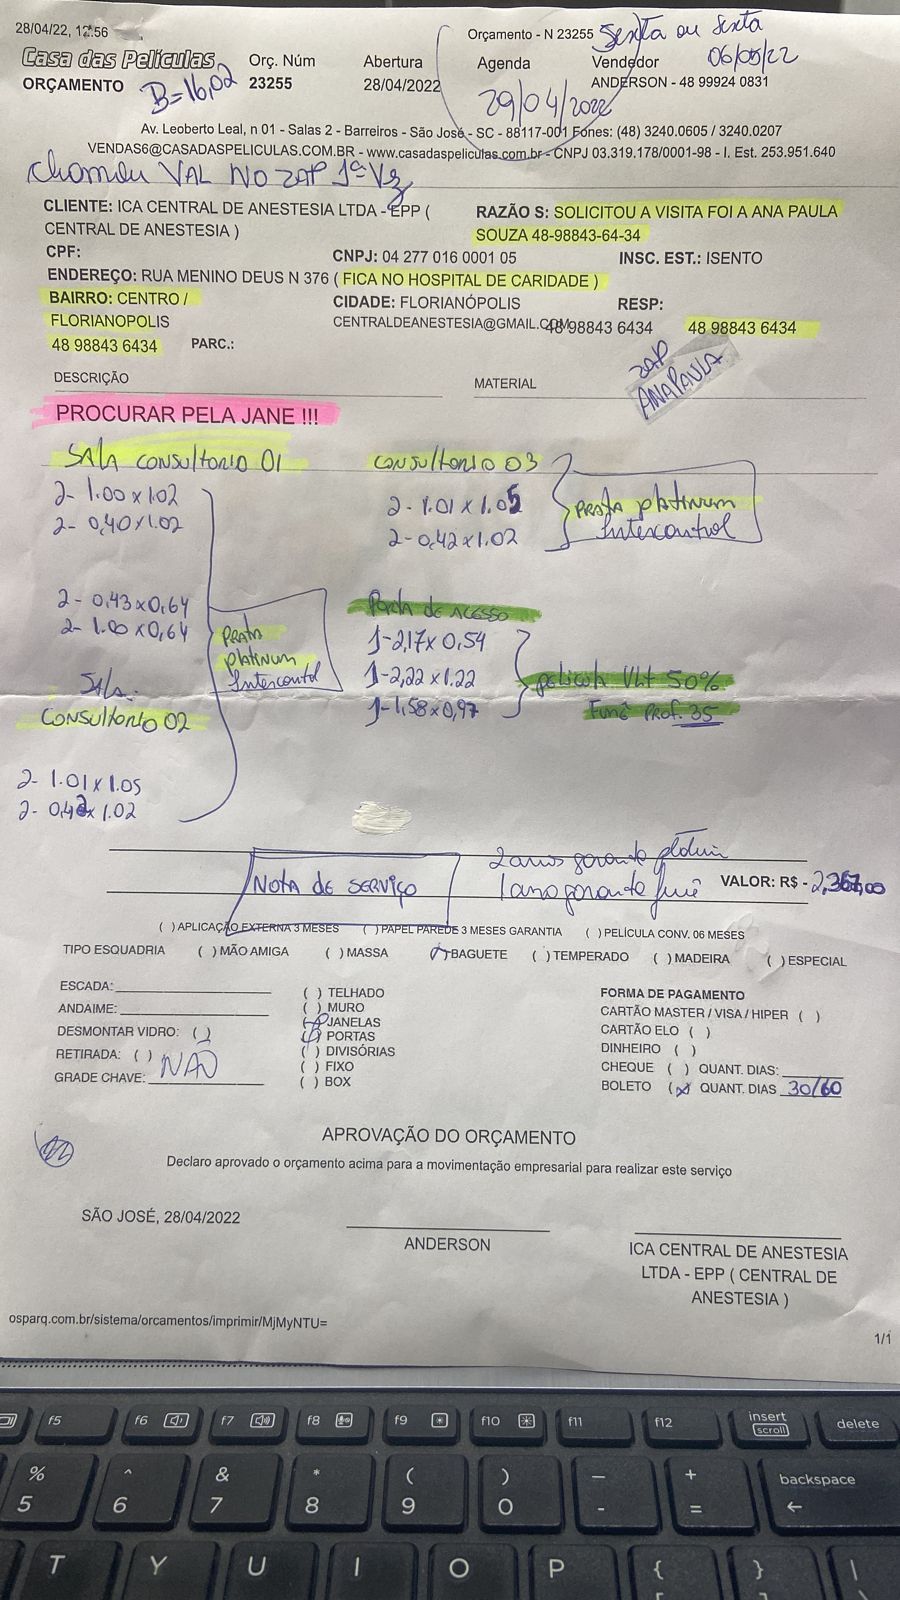 28/04/22, 12:56
Orçamento - N 23255
Sexta ou Sexta
06/05/22
Casa das Películas
ORÇAMENTO
B=16,02
Orç. Núm
23255
Abertura
28/04/2022
Agenda
29/04/2022
Vendedor
ANDERSON - 48 99924 0831
Av. Leoberto Leal, n 01 - Salas 2 - Barreiros - São José - SC - 88117-001 Fones: (48) 3240.0605 / 3240.0207
VENDAS6@CASADASPELICULAS.COM.BR - www.casadaspeliculas.com.br - CNPJ 03.319.178/0001-98 - I. Est. 253.951.640
VAL NO ZAP 1ª Vez
CLIENTE: ICA CENTRAL DE ANESTESIA LTDA - EPP (
CENTRAL DE ANESTESIA )
RAZÃO S: SOLICITOU A VISITA FOI A ANA PAULA
SOUZA 48-98843-64-34
CPF:
CNPJ: 04 277 016 0001 05
INSC. EST.: ISENTO
ENDEREÇO: RUA MENINO DEUS N 376 ( FICA NO HOSPITAL DE CARIDADE )
BAIRRO: CENTRO /
FLORIANOPOLIS
CIDADE: FLORIANÓPOLIS
RESP:
CENTRALDEANESTESIA@GMAIL.COM
48 98843 6434
48 98843 6434
48 98843 6434
PARC.:
ZAP
ANA PAULA
DESCRIÇÃO
MATERIAL
PROCURAR PELA JANE !!!
SALA CONSULTORIO 01
2- 1.00 x 1.02
2- 0,40 x 1.02
2- 0,43 x 0,64
2- 1.00 x 0,64
Prata
platinum
Intercontrol
SALA
CONSULTORIO 02
2- 1.01 x 1.05
2- 0,42 x 1.02
CONSULTORIO 03
2- 1.01 x 1.05
2- 0,42 x 1.02
PRATA platinum
Intercontrol
Porta de ACESSO
1-2,17 x 0,54
1-2,22 x 1.22
1-1,58 x 0,97
pelicula Vht 50%
Fumê Prof. 35
NOTA de SERVIÇO
2 anos garante
1 ano garante fumê
VALOR: R$ -
( ) APLICAÇÃO EXTERNA 3 MESES
( ) PAPEL PAREDE 3 MESES GARANTIA
( ) PELÍCULA CONV. 06 MESES
TIPO ESQUADRIA
( ) MÃO AMIGA
( ) MASSA
( ) BAGUETE
( ) TEMPERADO
( ) MADEIRA
( ) ESPECIAL
ESCADA:
ANDAIME:
DESMONTAR VIDRO: ( )
RETIRADA: ( )
NÃO
GRADE CHAVE:
( ) TELHADO
( ) MURO
( ) JANELAS
( ) PORTAS
( ) DIVISÓRIAS
( ) FIXO
( ) BOX
FORMA DE PAGAMENTO
CARTÃO MASTER / VISA / HIPER ( )
CARTÃO ELO ( )
DINHEIRO ( )
CHEQUE ( ) QUANT. DIAS:
BOLETO (x) QUANT. DIAS 30/60
APROVAÇÃO DO ORÇAMENTO
Declaro aprovado o orçamento acima para a movimentação empresarial para realizar este serviço
SÃO JOSÉ, 28/04/2022
ANDERSON
ICA CENTRAL DE ANESTESIA
LTDA - EPP ( CENTRAL DE
ANESTESIA )
osparq.com.br/sistema/orcamentos/imprimir/MjMyNTU=
1/1
f5 f6 f7 f8 f9 f10 f11 f12 insert delete
scroll
% ^ & * ( ) _ + backspace
5 6 7 8 9 0 - =
T Y U I O P { } |